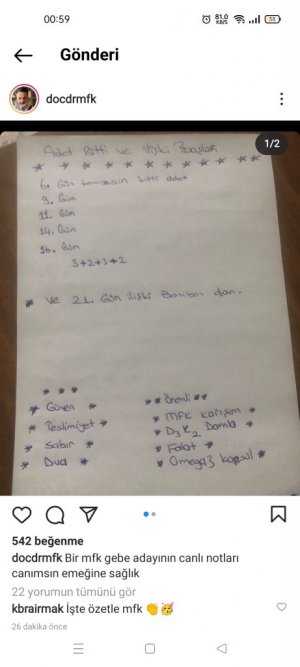 00:59
81.0 KB/S
38
Gönderi
docdrmfk
1/2
Adet Bitti ve ilişki Başlar
* * * * * * * * * * * *
6. Gün temizsin bitti adet
9. Gün
11. Gün
14. Gün
16. Gün
3+2+3+2
* ve 21. Gün ilişki
* * *
* Güven *
* Teslimiyet *
* Sabır *
* Dua *
** Önemli **
* MFK Karışım *
* D3 K2 Damla *
* Folat *
* Omega3 kapsül *
542 beğenme
docdrmfk Bir mfk gebe adayının canlı notları
canımsın emeğine sağlık
22 yorumun tümünü gör
kbrairmak İşte özetle mfk 👏🥳
26 dakika önce